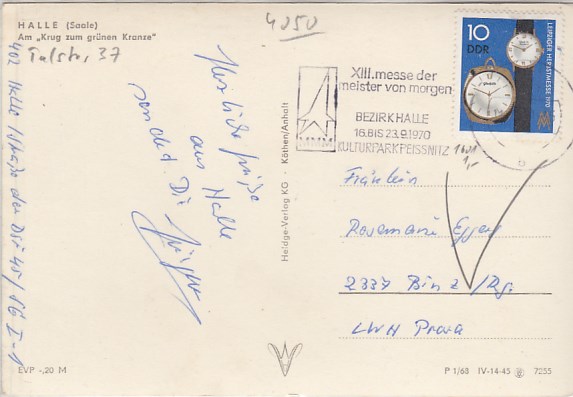 HALLE (Saale)
Am „Krug zum grünen Kranze"
Talstr. 37
4050
Herzliche Grüße
aus Halle
sendet Die
402 Halle / Straße der DSF 45 /
EVP -,20 M
Heldge-Verlag KG · Köthen/Anhalt
XIII. messe der
meister von morgen
BEZIRK HALLE
16. BIS 23.9.1970
KULTURPARK PEISSNITZ
10
DDR
LEIPZIGER HERBSTMESSE 1970
1621
1,-
b
Fräulein
Rosemarie
2337 Binz / Rg.
Prora
P 1/68 IV-14-45 7255